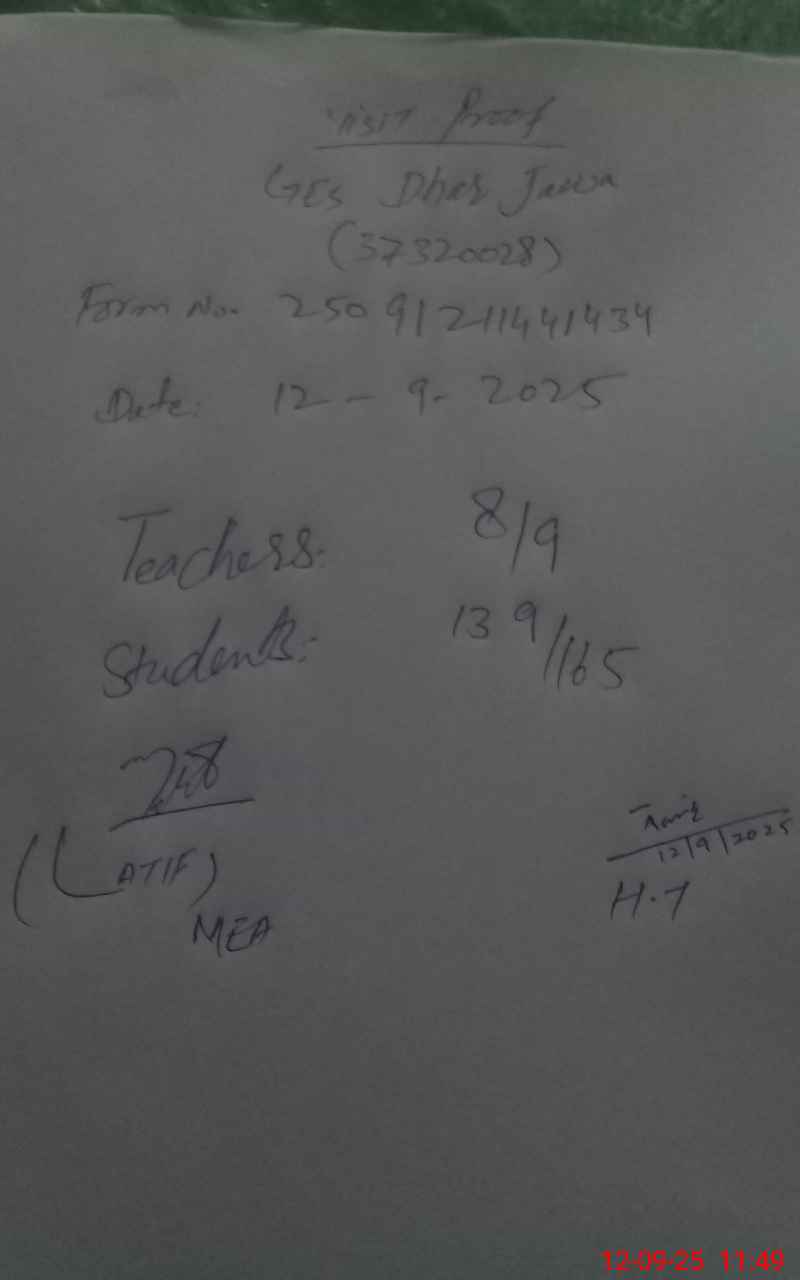 Visit Proof
GES Dhar Jawa
(37320028)
Form No. 25091211441434
Date: 12 - 9 - 2025
Teachers: 8/9
Students: 139/165
(LATIF)
MEA
12/9/2025
H.T
12-09-25 11:49